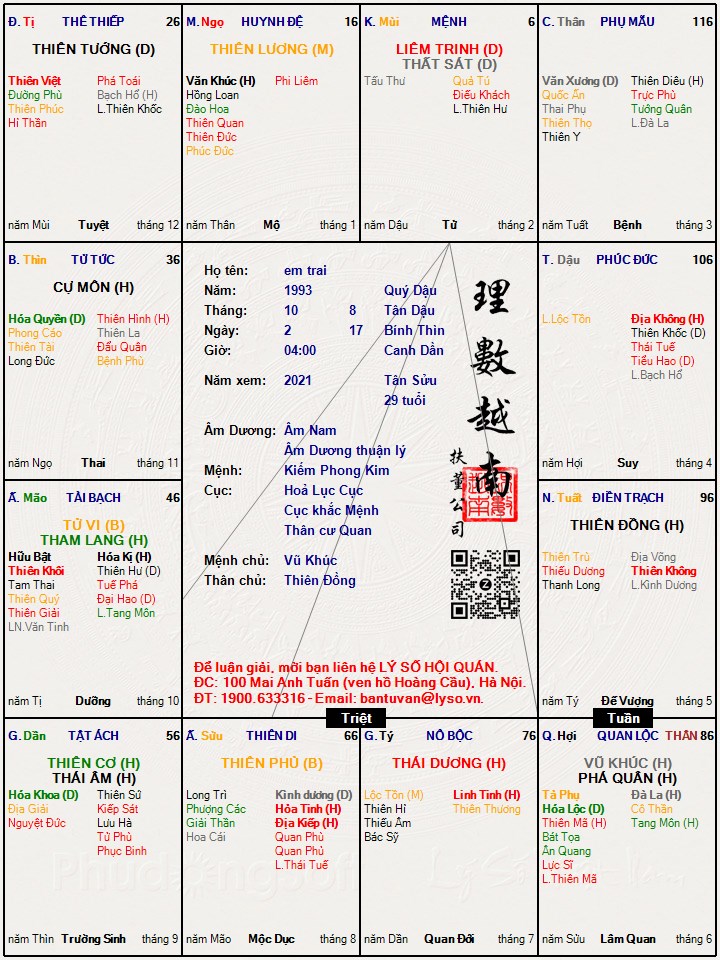 Đ. Tị THÊ THIẾP 26
THIÊN TƯỚNG (D)
Thiên Việt Phá Toái
Đường Phù Bạch Hổ (H)
Thiên Phúc L.Thiên Khốc
Hỉ Thần
năm Mùi Tuyệt tháng 12
M. Ngọ HUYNH ĐỆ 16
THIÊN LƯƠNG (M)
Văn Khúc (H) Phi Liêm
Hồng Loan
Đào Hoa
Thiên Quan
Thiên Đức
Phúc Đức
năm Thân Mộ tháng 1
K. Mùi MỆNH 6
LIÊM TRINH (D)
THẤT SÁT (D)
Tấu Thư Quả Tú
Điếu Khách
L.Thiên Hư
năm Dậu Tử tháng 2
C. Thân PHỤ MẪU 116
Văn Xương (D) Thiên Diêu (H)
Quốc Ấn Trực Phù
Thai Phụ Tướng Quân
Thiên Thọ L.Đà La
Thiên Y
năm Tuất Bệnh tháng 3
B. Thìn TỬ TỨC 36
CỰ MÔN (H)
Hóa Quyền (D) Thiên Hình (H)
Phong Cáo Thiên La
Thiên Tài Đẩu Quân
Long Đức Bệnh Phù
năm Ngọ Thai tháng 11
Họ tên: em trai
Năm: 1993 Quý Dậu
Tháng: 10 8 Tân Dậu
Ngày: 2 17 Bính Thìn
Giờ: 04:00 Canh Dần
Năm xem: 2021 Tân Sửu
29 tuổi
Âm Dương: Âm Nam
Âm Dương thuận lý
Mệnh: Kiếm Phong Kim
Cục: Hoả Lục Cục
Cục khắc Mệnh
Thân cư Quan
Mệnh chủ: Vũ Khúc
Thân chủ: Thiên Đồng
理數越南
扶董公司
Z
Để luận giải, mời bạn liên hệ LÝ SỐ HỘI QUÁN.
ĐC: 100 Mai Anh Tuấn (ven hồ Hoàng Cầu), Hà Nội.
ĐT: 1900.633316 - Email: bantuvan@lyso.vn.
T. Dậu PHÚC ĐỨC 106
L.Lộc Tồn Địa Không (H)
Thiên Khốc (D)
Thái Tuế
Tiểu Hao (D)
L.Bạch Hổ
năm Hợi Suy tháng 4
Ấ. Mão TÀI BẠCH 46
TỬ VI (B)
THAM LANG (H)
Hữu Bật Hóa Kị (H)
Thiên Khôi Thiên Hư (D)
Tam Thai Tuế Phá
Thiên Quý Đại Hao (D)
Thiên Giải L.Tang Môn
LN.Văn Tinh
năm Tị Dưỡng tháng 10
N. Tuất ĐIỀN TRẠCH 96
THIÊN ĐỒNG (H)
Thiên Trù Địa Võng
Thiếu Dương Thiên Không
Thanh Long L.Kình Dương
năm Tý Đế Vượng tháng 5
Triệt
Tuần
G. Dần TẬT ÁCH 56
THIÊN CƠ (H)
THÁI ÂM (H)
Hóa Khoa (D) Thiên Sứ
Địa Giải Kiếp Sát
Nguyệt Đức Lưu Hà
Tử Phù
Phục Binh
năm Thìn Trường Sinh tháng 9
Ấ. Sửu THIÊN DI 66
THIÊN PHỦ (B)
Long Trì Kình dương (D)
Phượng Các Hỏa Tinh (H)
Giải Thần Địa Kiếp (H)
Hoa Cái Quan Phủ
Quan Phù
L.Thái Tuế
năm Mão Mộc Dục tháng 8
G. Tý NÔ BỘC 76
THÁI DƯƠNG (H)
Lộc Tồn (M) Linh Tinh (H)
Thiên Hỉ Thiên Thương
Thiếu Âm
Bác Sỹ
năm Dần Quan Đới tháng 7
Q. Hợi QUAN LỘC THÂN 86
VŨ KHÚC (H)
PHÁ QUÂN (H)
Tả Phụ Đà La (H)
Hóa Lộc (D) Cô Thần
Thiên Mã (H) Tang Môn (H)
Bát Tọa
Ân Quang
Lực Sĩ
L.Thiên Mã
năm Sửu Lâm Quan tháng 6